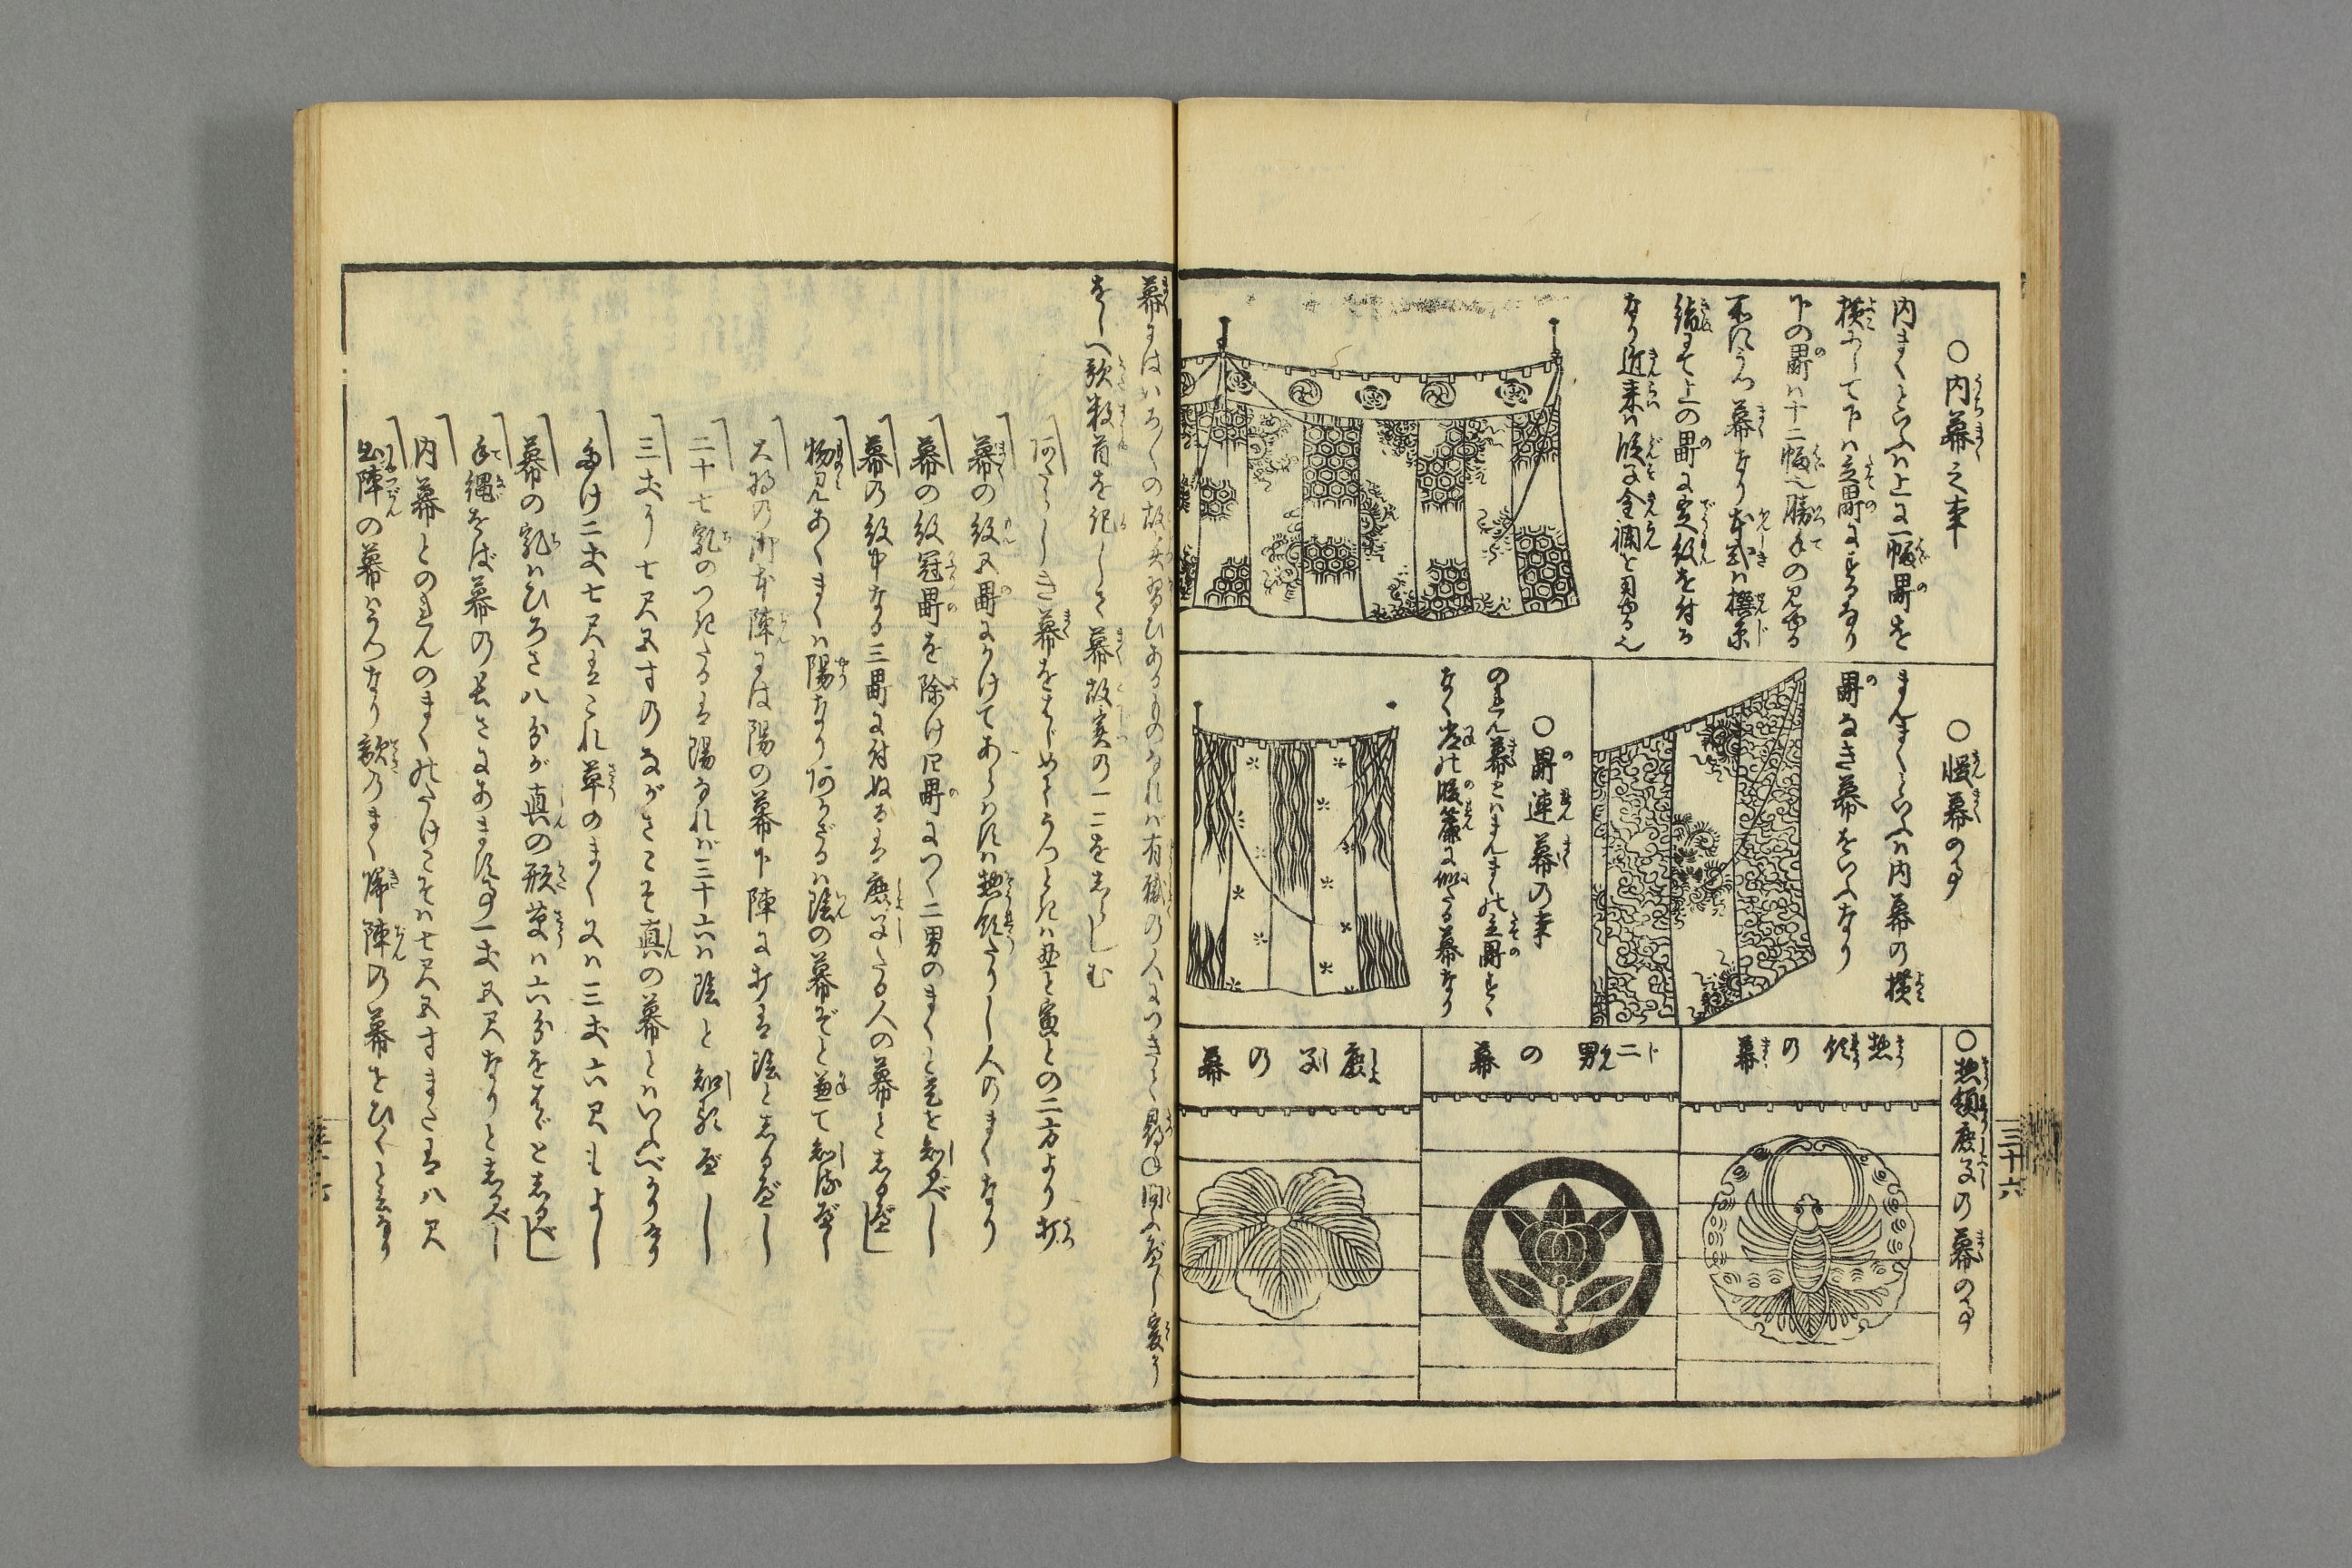 〇内幕之事
内まくといふハ上に一幅㽟を
横にして下ハ立㽟にするなり
下の㽟ハ十二幅也勝手の見ゆる
所にうつ幕なり本式ハ撰糸
絹にて上の㽟に定紋を付る
なり近来ハ段子金襴を用ゆる也
〇幔幕の事
まんまくといふハ内幕の横
㽟なき幕をいふなり
〇㽟連幕の事
のれん幕とハまんまくの立㽟
なく常の暖簾に似たる幕なり
〇惣領庶子の幕の事
惣領の幕
二男の幕
庶子の幕
三十六
幕にはいろ〳〵の故実習ひあるものなれバ有職の人につきて尋ね問ふべし爰に
をしへ歌数首を記して幕故実の一二をしらしむ
あたらしき幕をはじめてうつときハ丑と寅との二方より打
幕の紋五㽟にかけてあらハすハ惣領たりし人のまくなり
幕の紋冠㽟を除け四㽟につく二男のまくと是を知べし
幕の紋中なる三㽟に付ぬるは庶子たる人の幕としるべし
物見あくまくハ陽なりあかざるハ陰の幕ぞと兼て知べし
大将の御本陣には陽の幕下陣に打は陰としるべし
二十七乳のつきたるは陽なれバ三十六ハ陰と知るべし
三丈う七尺五寸のながさこそ真の幕とハいふべかりけり
たけ二丈七尺はこれ草のまく又ハ三丈六尺もよし
幕の乳ハひろさ八分が真の形草ハ六分をほどとしるべし
手縄をば幕の長さにあます事一丈五尺なりとしるべし
内幕とのれんのまくのたけこそハ七尺五寸または八尺
出陣の幕ハうつなり歌のまく帰陣の幕をひくと云なり